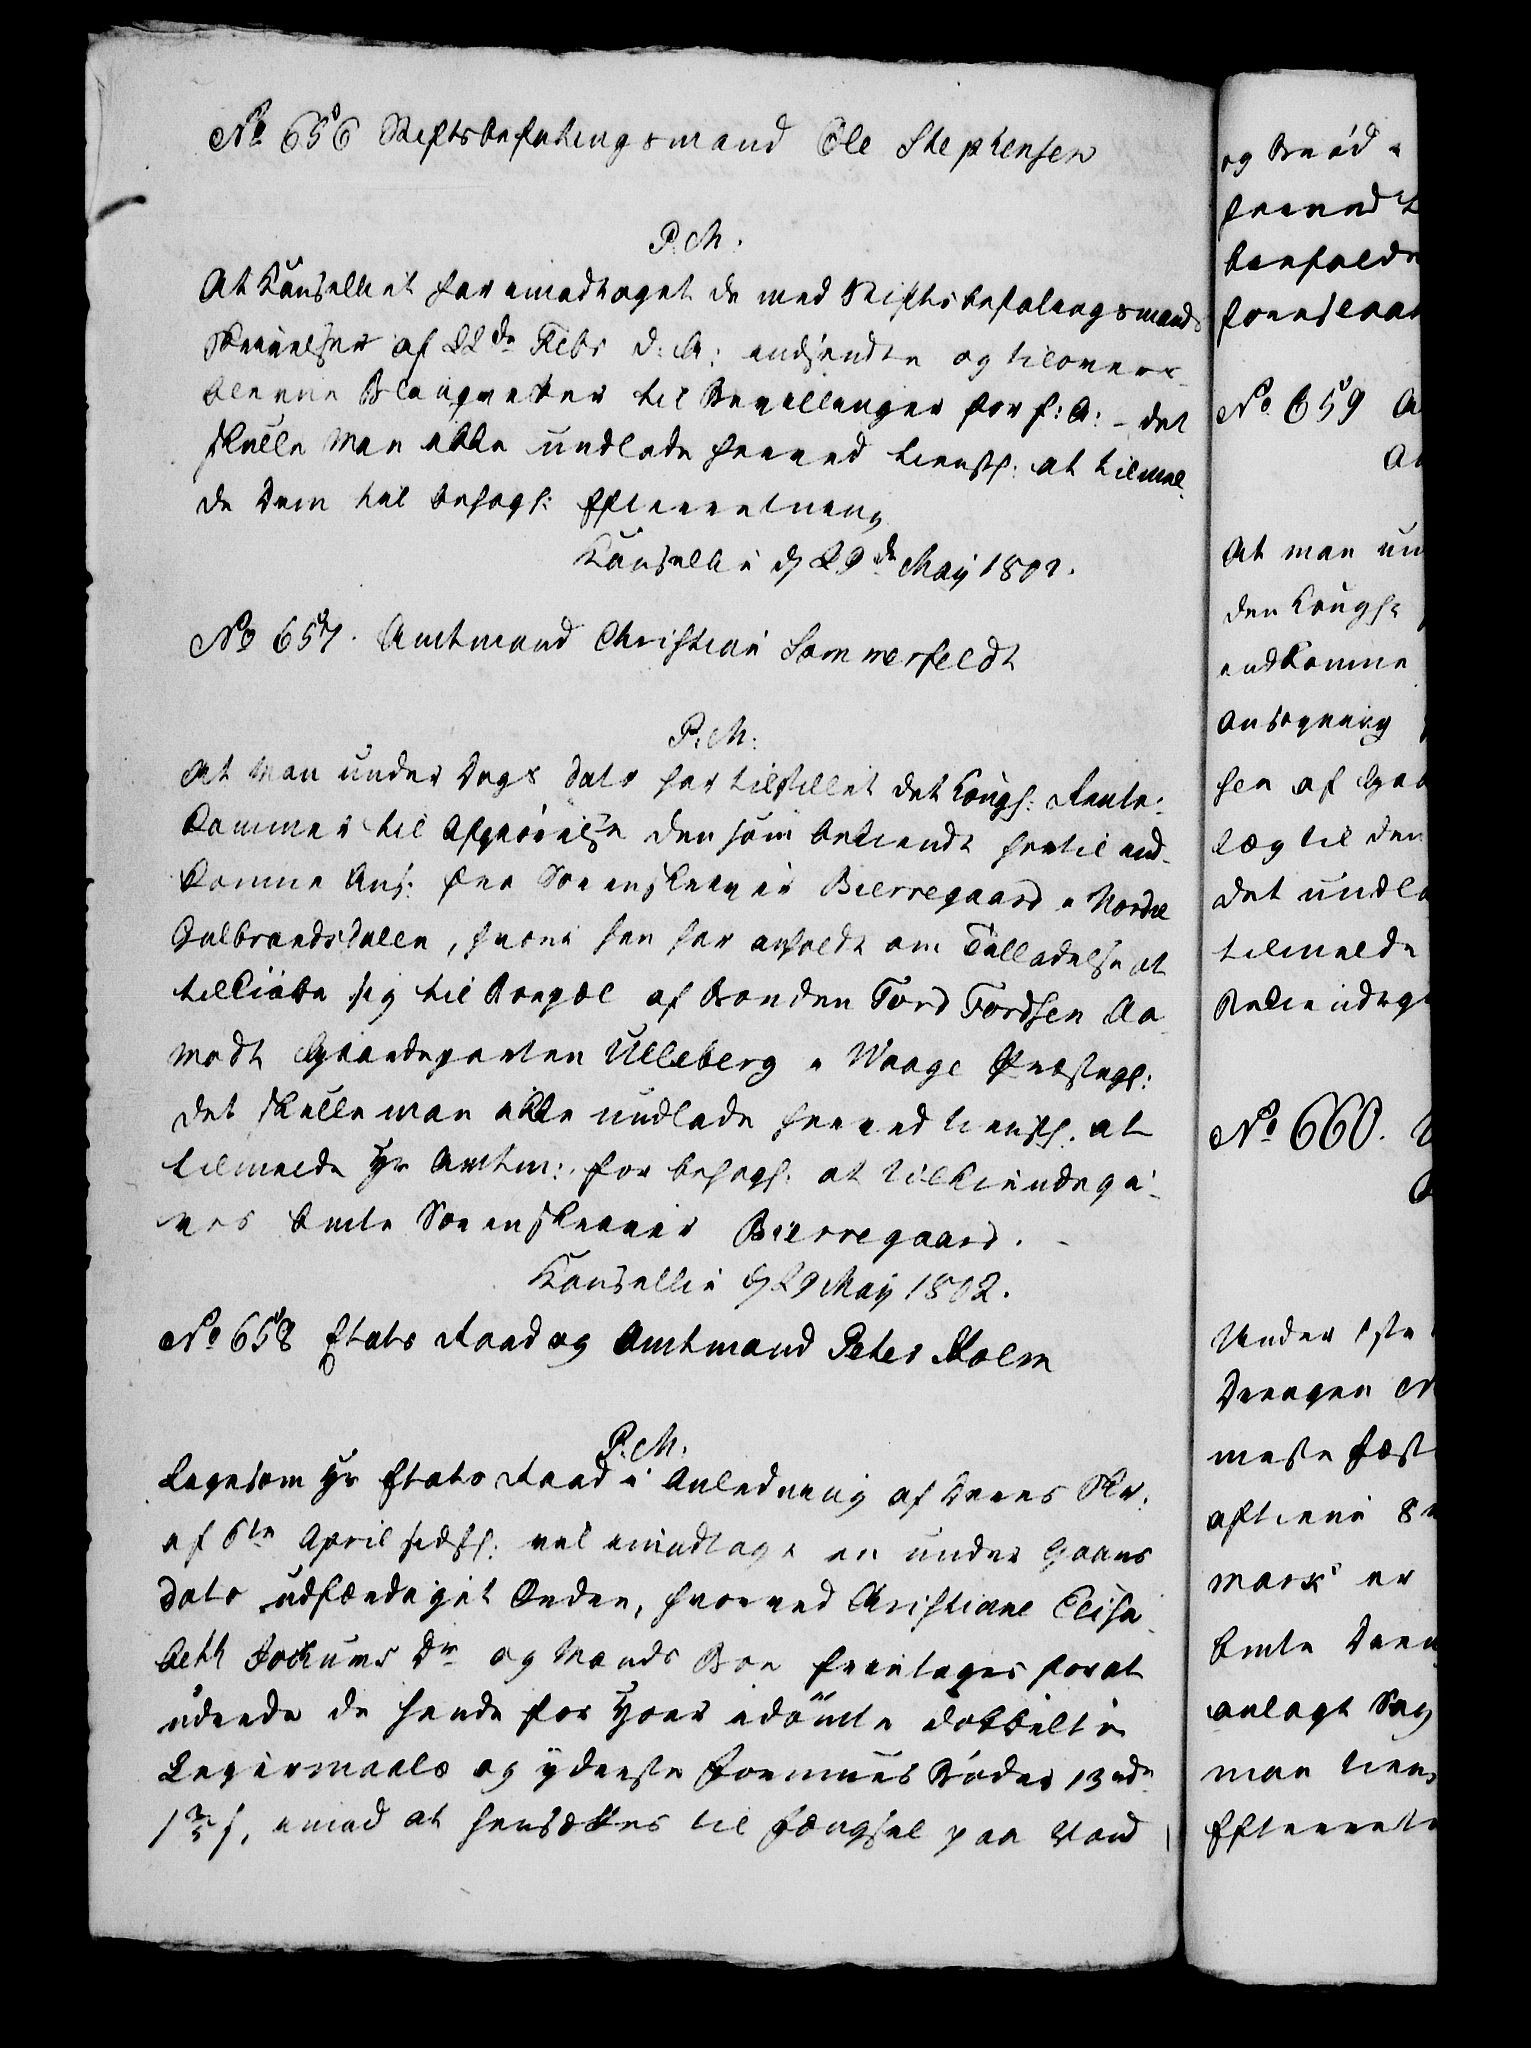 No 656 Stiftsbefalingsmand Ole Stephensen
P. M.
At Kanselliet har imodtaget de med Stiftsbefalingsmands
Skrivelse af 22de Febr d: A: indsendte og tilovers-
blevne Blanqvetter til Bevillinger for f: A: - det
skulle man ikke undlade herved tienstl: at tilmel-
de Dem til behagl: Efterretning
Kanselliet d 29de Maij 1802.
No 657. Amtmand Christian Sommerfeldt
P. M.
At man under Dags Dato har tilstillet det Kongl: Rente-
kammer til Afgiørelse den som bekiendt hertil ind-
komne Ans: fra Sorenskriver Bierregaard i Nordre
Gulbrandsdalen, hvori han har anholdt om Tilladelse at
tilkiøbe sig til Brugel af Bonden Tord Tordsen Aa-
modt Gaardeparten Ulleberg i Waage Præstegl:
det skulle man ikke undlade herved tienstl. at
tilmelde Hr Amtm: for behagl. at tilkiendegi-
ves bemte Sorenskriver Bierregaard. -
Kanselliet d 29 Maij 1802.
No 658 Etats Raad og Amtmand Peter Holm
P. M.
Ligesom Hr Etats Raad i Anledning af Deres Skr:
af 6te April sidstl: vil imodtage en under Gaars
Dato udfærdiget Ordre, hvorved Christiane Elisa-
beth Jochums Dr og Mands Boe fritages for at
udrede de hende for Hoer idømte dobbelte
Leiermaals og yderste Formues Bøder 13 rdr
1 3/5 s, imod at hensættes til Fængsel paa Vand
og Brød i
herved t
behfalde
forestaa
No 659 A
A
At man un
den Kongl:
indkomne
Ansøgning
hen af
læg til den
det undla
tilmelde
Bekiendtg
No 660.
Under 1ste
Drengen
meste fæst
aftient 8
mark er
bemte Dren
anlagt Sag
man tiens
Efterret